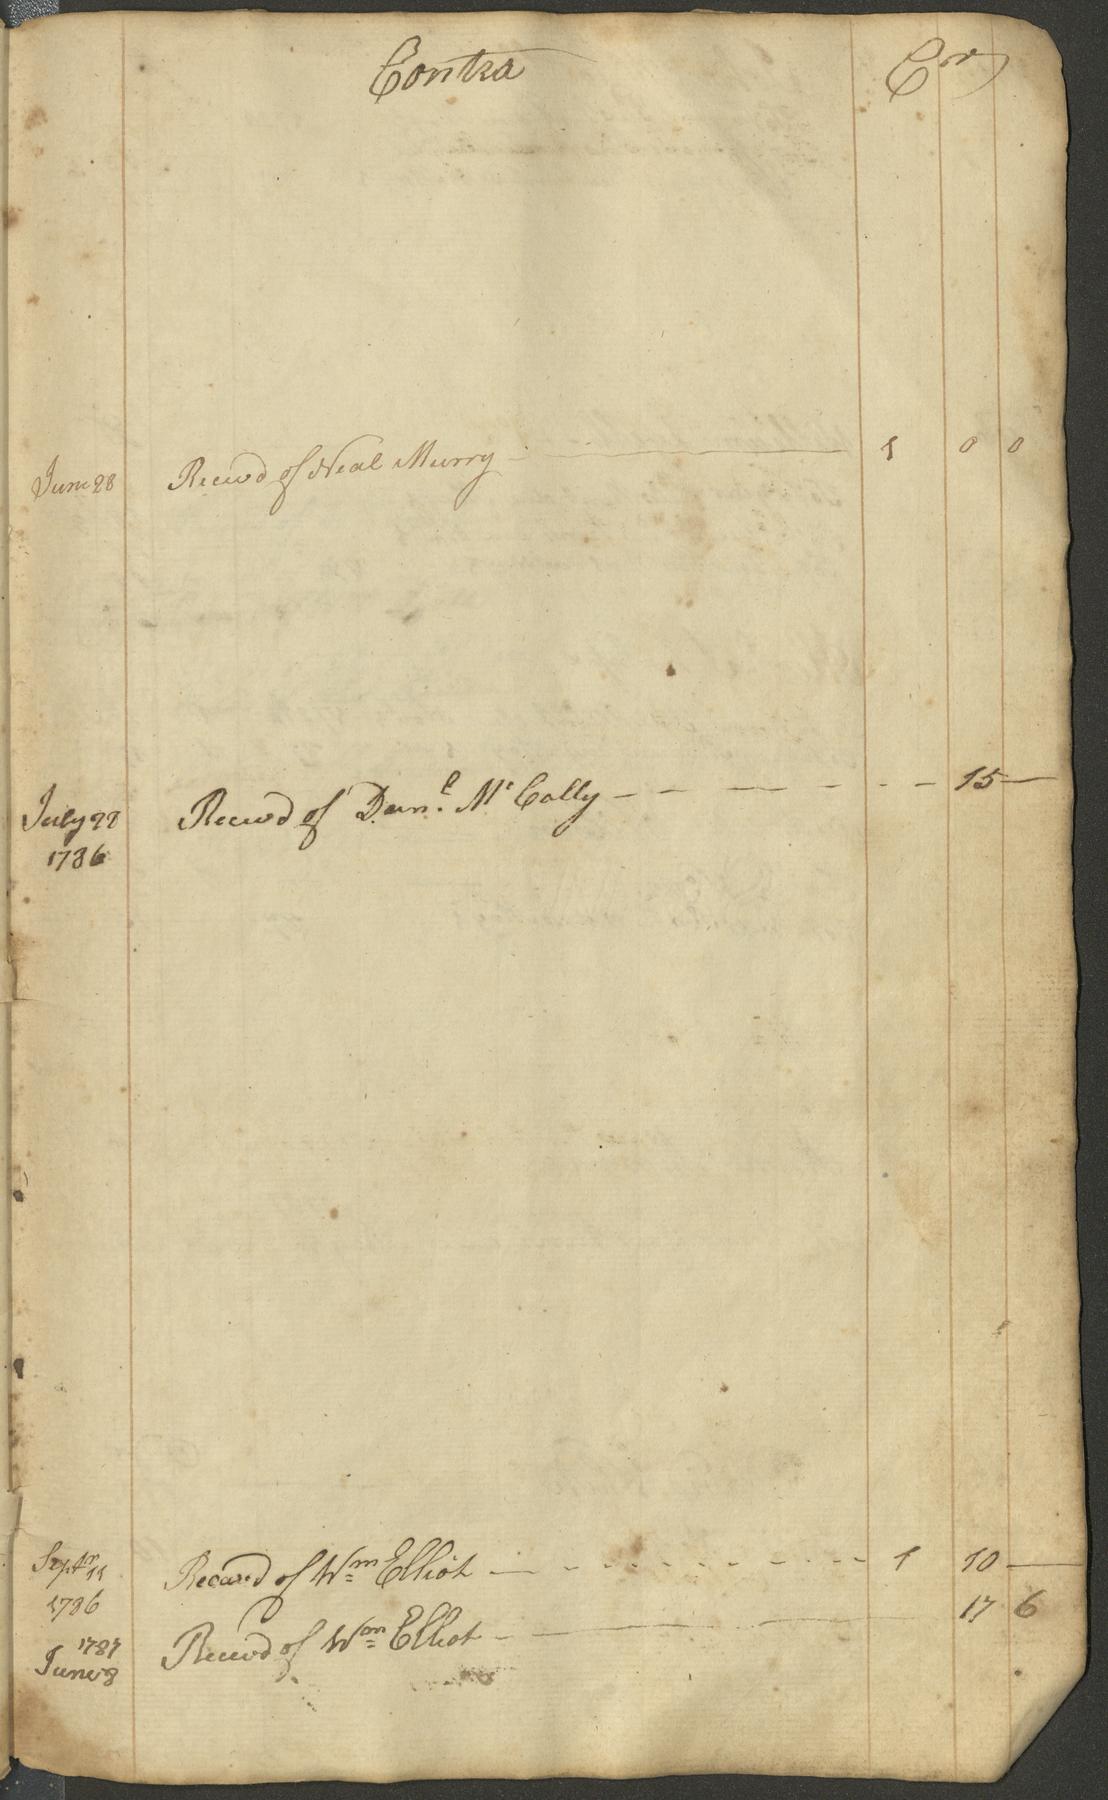 Contra Cr
June 28 Recevd of Neal Murry 1 0 0
July 22 Recevd of Danl. Mc Cally 15
1786
Septr 11 Recavd of Wm Elliot 1 10
1786
1787 Recevd of Wm Elliot 17 6
June 8